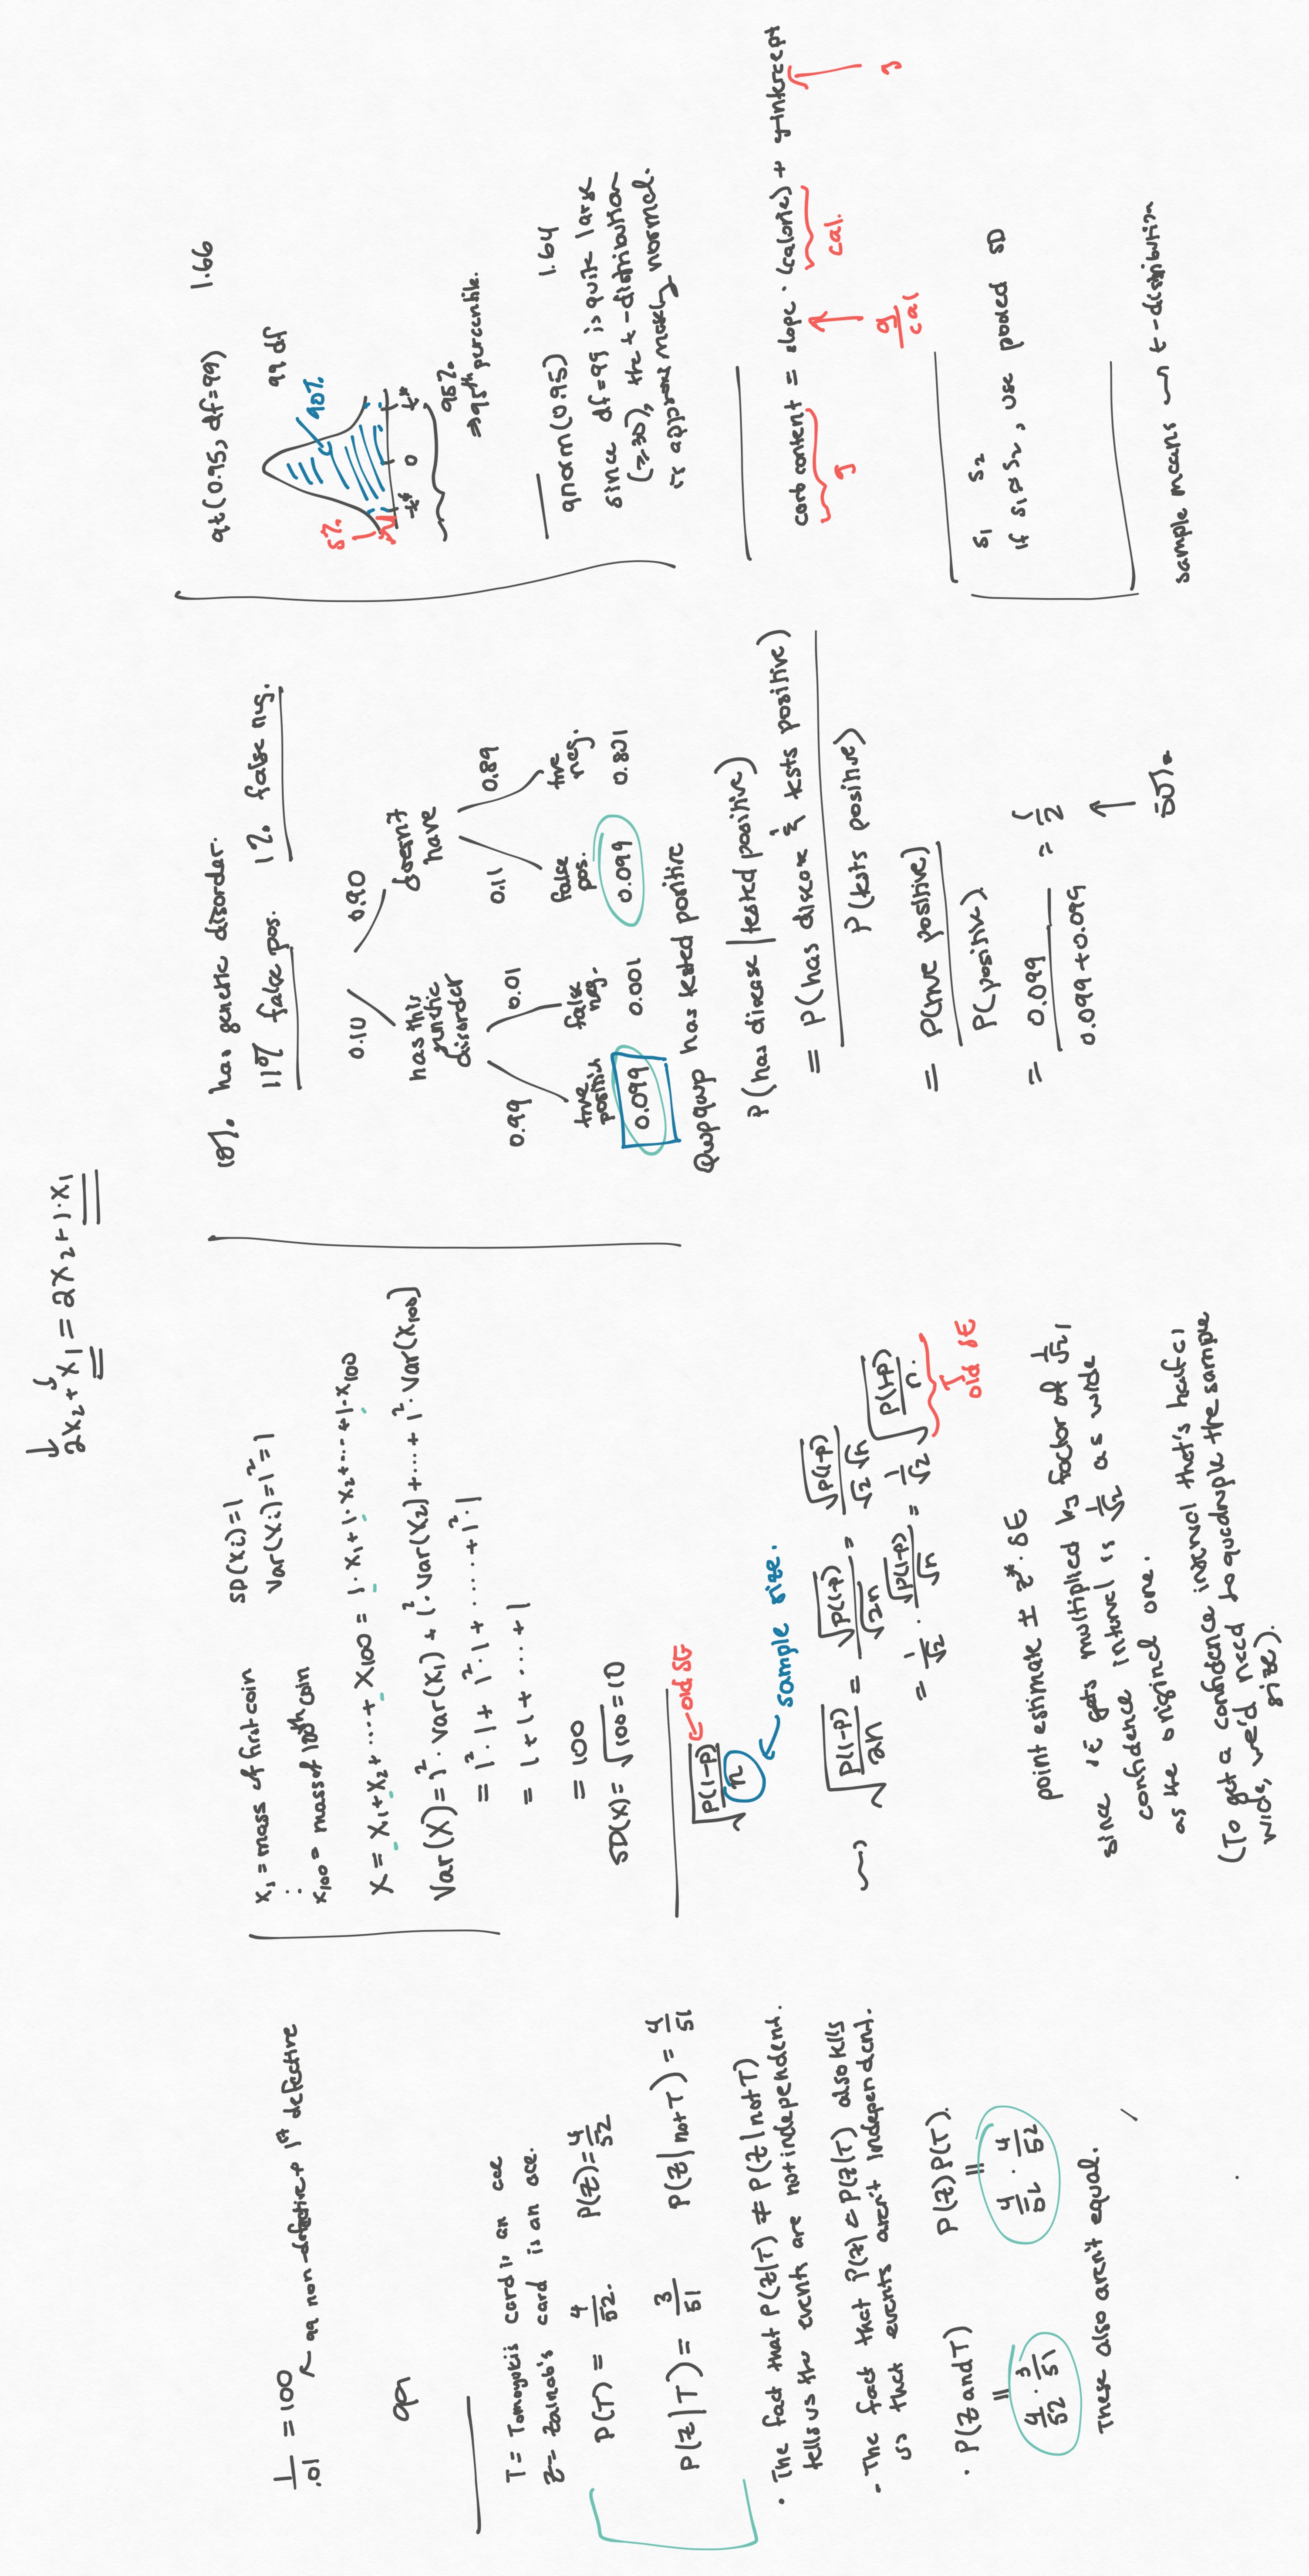 2x₂ + x₁ = 2x₂ + 1·x₁
1/.01 = 100
99 non-defective + 1st defective
99
T = Tomoyuki's card is an ace
Z = Zainab's card is an ace.
P(T) = 4/52. P(Z) = 4/52
P(Z|T) = 3/51 P(Z|not T) = 4/51
· The fact that P(Z|T) ≠ P(Z|not T)
tells us the events are not independent.
- The fact that P(Z) ≠ P(Z|T) also tells
us that events aren't independent.
· P(Z and T) P(Z)P(T).
|| ||
4/52 · 3/51 4/52 · 4/52
These also aren't equal.
x₁ = mass of first coin SD(xi) = 1
⋮ Var(xi) = 1² = 1
x₁₀₀ = mass of 100th coin
X = X₁ + X₂ + ··· + X₁₀₀ = 1·X₁ + 1·X₂ + ··· + 1·X₁₀₀
Var(X) = 1²·Var(X₁) + 1²·Var(X₂) + ··· + 1²·Var(X₁₀₀)
= 1²·1 + 1²·1 + ····· + 1²·1
= 1 + 1 + ··· + 1
= 100
SD(X) = √100 = 10
√(p(1-p)/n) old SE
sample size.
√(p(1-p)/2n) = √p(1-p)/√2n = √p(1-p)/√2 √n
= 1/√2 · √p(1-p)/√n = 1/√2 √(p(1-p)/n.)
old SE
point estimate ± z*·SE
since SE gets multiplied by factor of 1/√2,
confidence interval is 1/√2 as wide
as the original one.
(To get a confidence interval that's half as
wide, we'd need to quadruple the sample
size).
10% has genetic disorder.
11% false pos. 1% false neg.
0.10 0.90
has this genetic disorder
doesn't have
0.99 0.01 0.11 0.89
true positive false neg. false pos. true neg.
0.099 0.001 0.099 0.801
Qwpqwp has tested positive
P(has disease | tested positive)
= P(has disease & tests positive)
P(tests positive)
= P(true positive)
P(positive)
= 0.099 = 1/2
0.099 + 0.099
50%
qt(0.95, df=99) 1.66
99 df
5% 90%
-t* 0 t*
95%
⇒ 95th percentile.
qnorm(0.95) 1.64
since df=99 is quite large
(≥30), the t-distribution
is approximately normal.
carb content = slope · (calorie) + y-intercept
g cal.
g/cal g
s₁ s₂
if s₁ ≈ s₂, use pooled SD
sample means ⇝ t-distribution